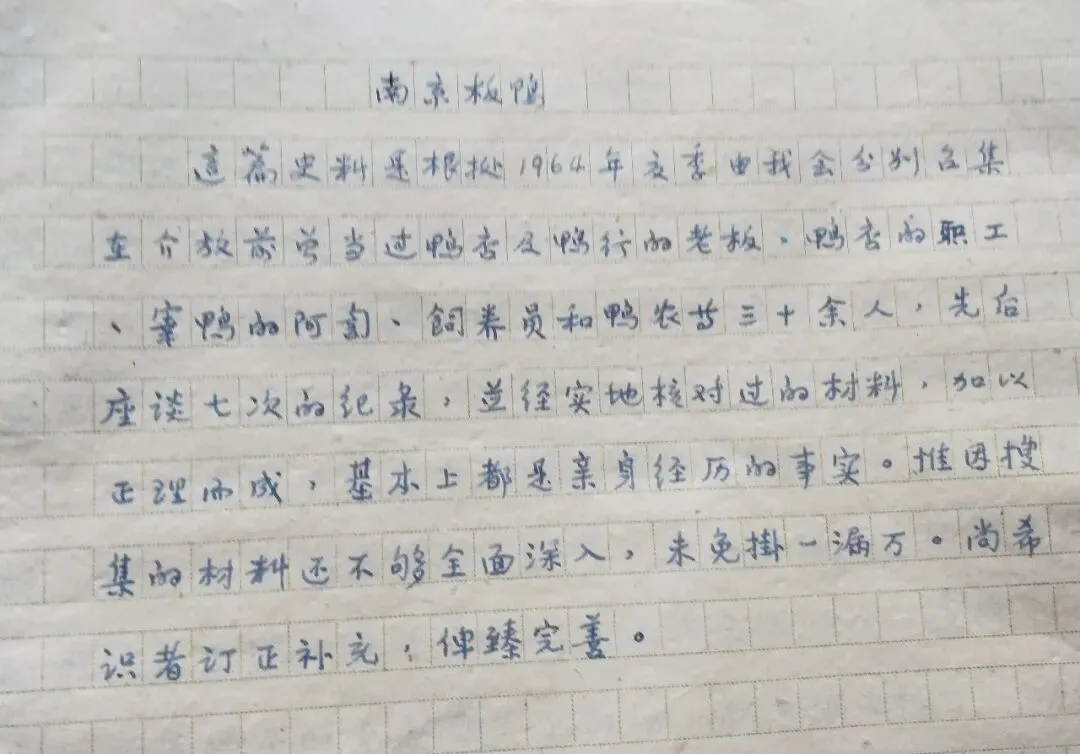 南京板鸭
這篇史料是根据1964年夏季由我会分别召集
在介放前曾当过鸭店及鸭行的老板、鸭店的职工
、宰鸭的阿訇、飼养员和鸭农等三十余人,先后
座谈七次的纪录,並经实地核对过的材料,加以
正理而成,基本上都是亲身经历的事实。惟因搜
集的材料还不够全面深入,未免掛一漏万。尚希
识者订正补充,俾臻完善。